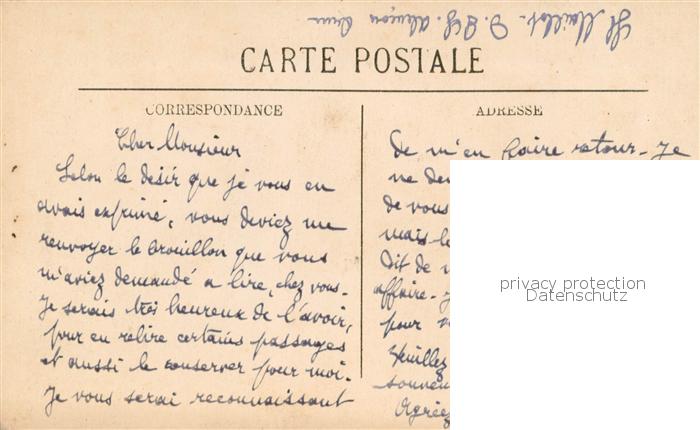 CARTE POSTALE
CORRESPONDANCE
Cher Monsieur
Selon le désir que je vous en
avais exprimé, vous deviez me
renvoyer le brouillon que vous
m'aviez demandé a lire, chez vous.
Je serais très heureux de l'avoir,
pour en relire certains passages
et aussi le conserver pour moi.
Je vous serai reconnaissant
ADRESSE
de m'en faire retour. Je
ne
de vous
mais
dit de
affaire.
pour
Veuillez
Agréez
privacy protection
Datenschutz